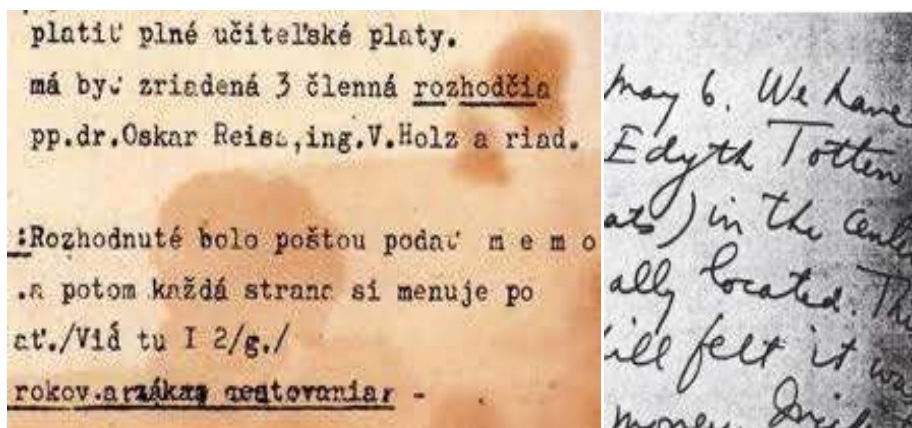 platiť plné učiteľské platy.
má byť zriadená 3 členná rozhodčia
pp.dr.Oskar Reiss,ing.V.Holz a riad.
:Rozhodnuté bolo poštou podať m e m o
.a potom každá strana si menuje po
ať./Viď tu I 2/g./
rokov.a zákaz cestovania, -
May 6. We have
Edyth Totten
ats) in the cente
ally located. The
ill felt it wa
money.